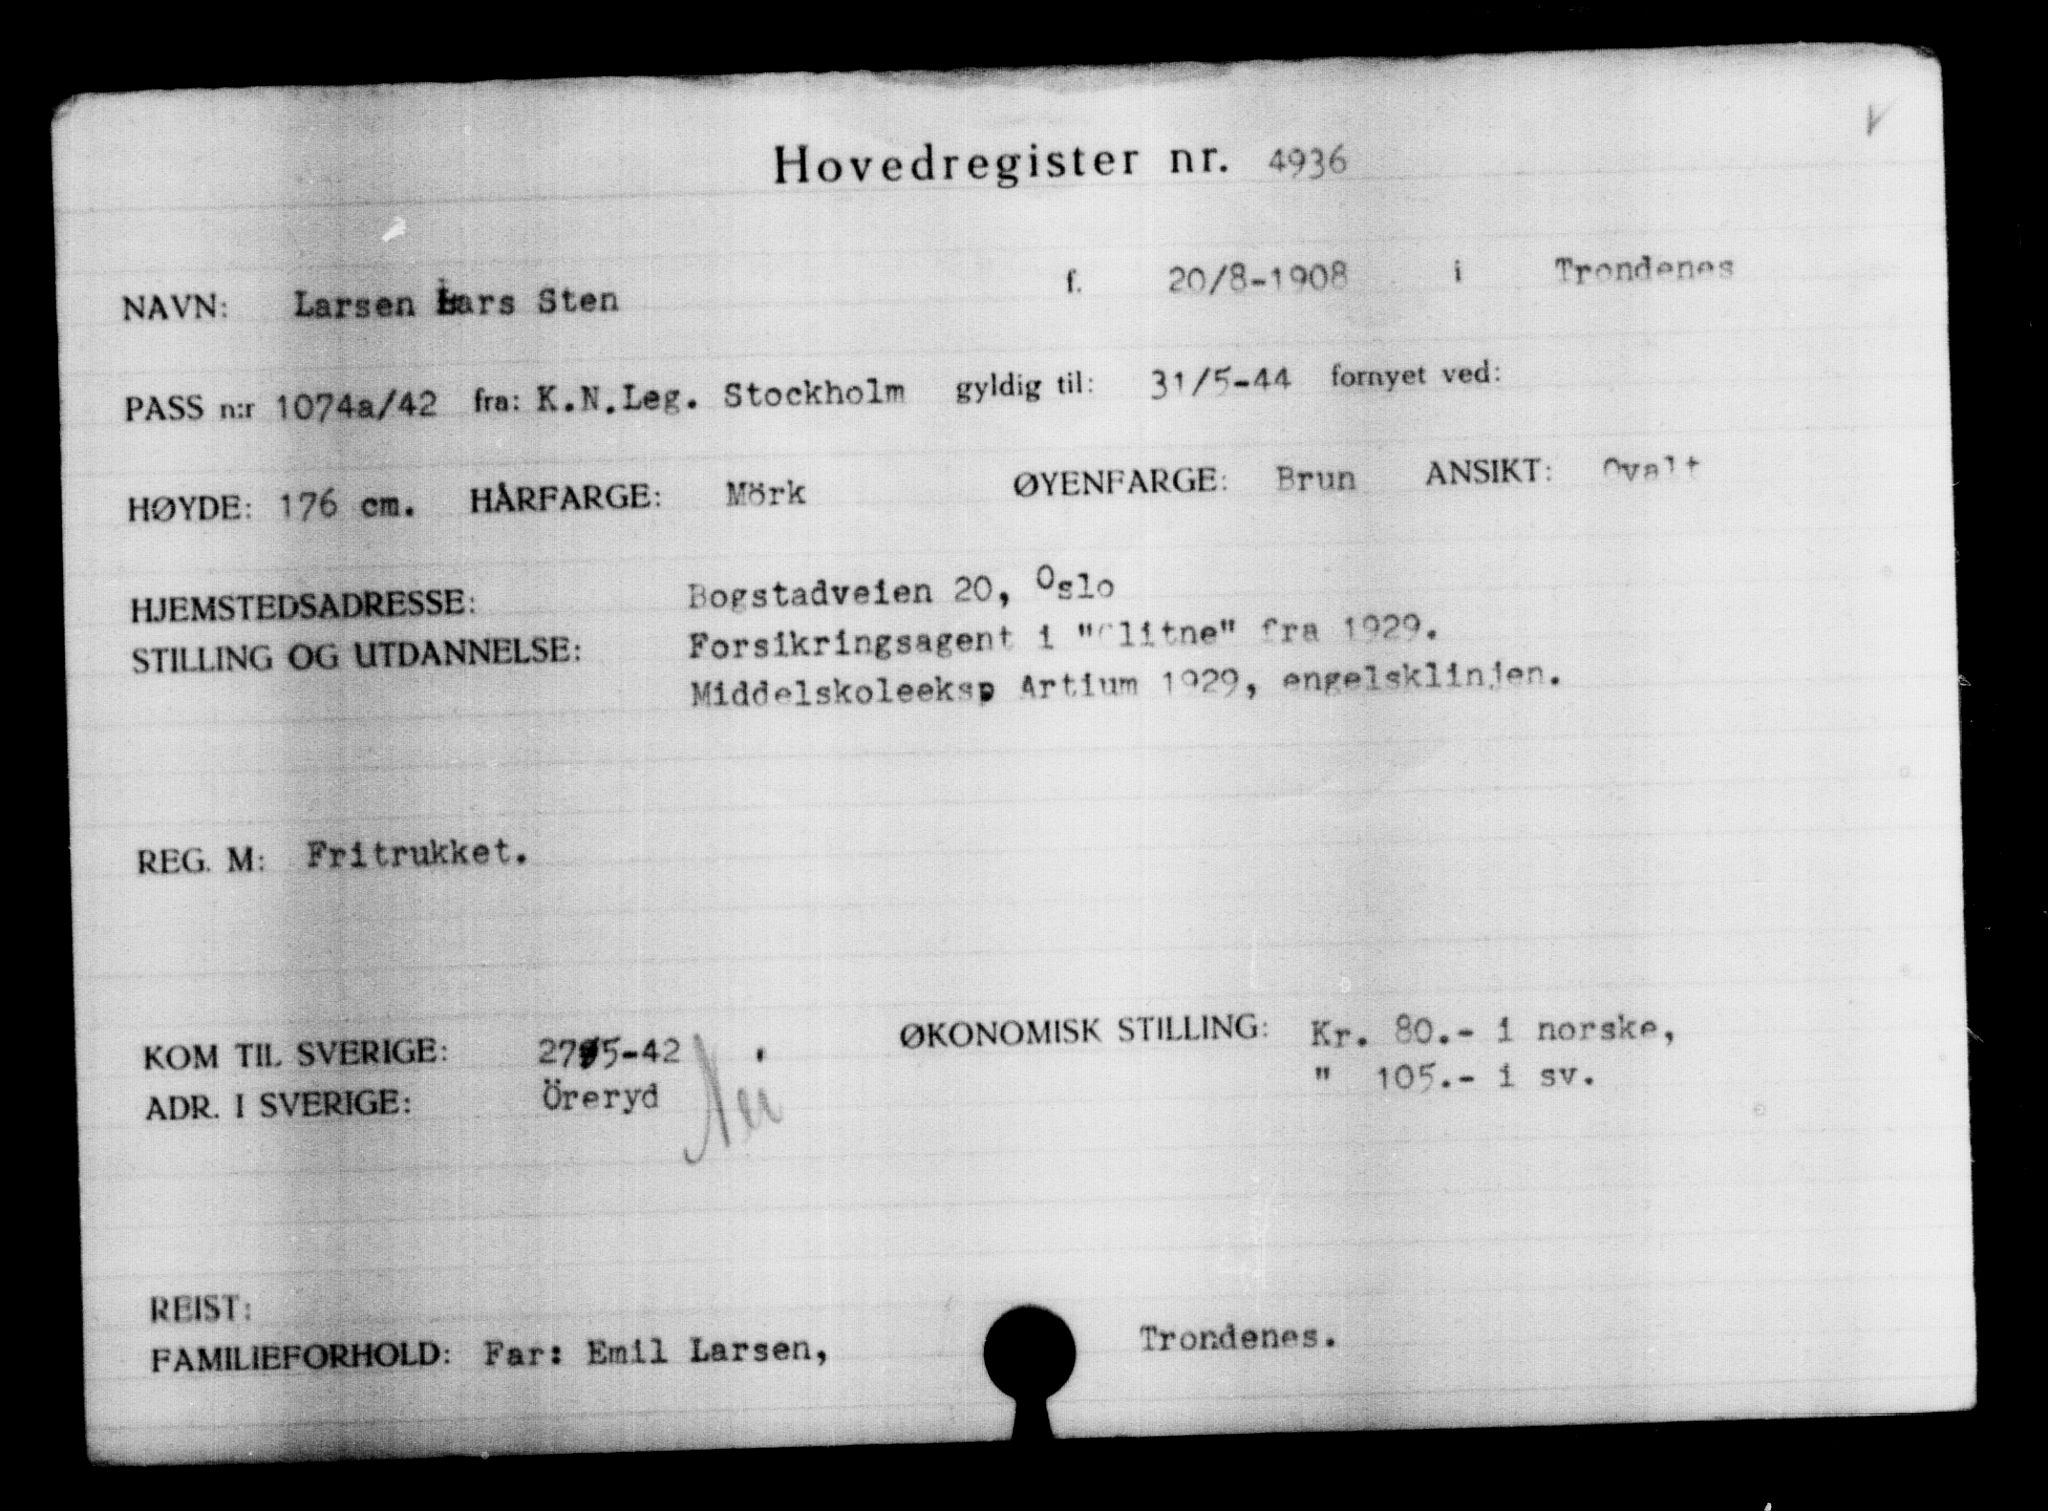 Hovedregister nr. 4936
NAVN: Larsen Lars Sten f. 20/8-1908 i Trondenes
PASS n:r 1074a/42 fra: K.N.Leg. Stockholm gyldig til: 31/5-44 fornyet ved:
HØYDE: 176 cm. HÅRFARGE: Mörk ØYENFARGE: Brun ANSIKT: Ovalt
HJEMSTEDSADRESSE: Bogstadveien 20, Oslo
STILLING OG UTDANNELSE: Forsikringsagent i "Glitne" fra 1929.
Middelskoleeksp Artium 1929, engelsklinjen.
REG. M: Fritrukket.
KOM TIL SVERIGE: 27/5-42 ØKONOMISK STILLING: Kr. 80.- i norske,
ADR. I SVERIGE: Öreryd Nei " 105.- i sv.
REIST:
FAMILIEFORHOLD: Far: Emil Larsen, Trondenes.